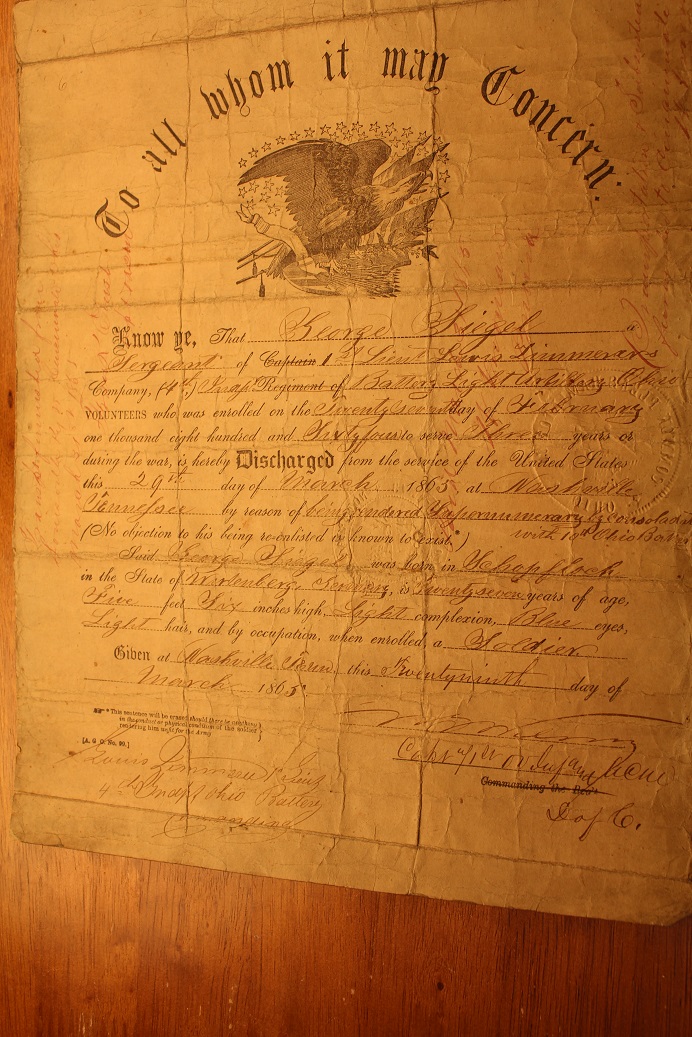 To all whom it may Concern:
Know ye, That George Siegel a
Sergeant of Captain 1st Lieut Louis Zimmerer's
Company, (4th) Indpt Regiment of Battery Light Artillery Ohio
VOLUNTEERS who was enrolled on the Twenty seventh day of February
one thousand eight hundred and Sixty four to serve Three years or
during the war, is hereby Discharged from the service of the United States
this 29th day of March 1865 at Nashville
Tennessee by reason of being rendered Supernumerary by consolidation
with 10th Ohio Bat
(No objection to his being re-enlisted is known to exist.*)
Said George Siegel was born in Schopfloch
in the State of Wirtenberg Germany, is Twenty seven years of age,
Five feet Six inches high, Light complexion, Blue eyes,
Light hair, and by occupation, when enrolled, a Soldier
Given at Nashville Tenn this Twenty ninth day of
March 1865
* This sentence will be erased should there be anything
in the conduct or physical condition of the soldier
rendering him unfit for the Army
[A. G. O. No. 99.]
Louis Zimmerer 1st Lieut
4th Indpt Ohio Battery
Commanding
Capt 1st OV Infany ACM
Commanding the Reg't
D of C.